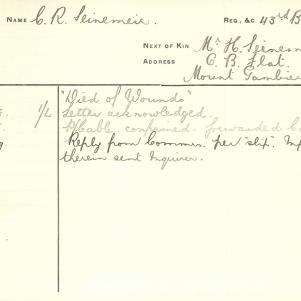 NAME C. R. Seinemeir. REG. &C. 43rd B
NEXT OF KIN Mr H. Seinem
ADDRESS C. B. Flat.
Mount Gambier
"Died of Wounds"
1/2 Letter acknowledged.
confirmed. forwarded
Reply from Commrs. per "slip".
therein sent Inquirer.